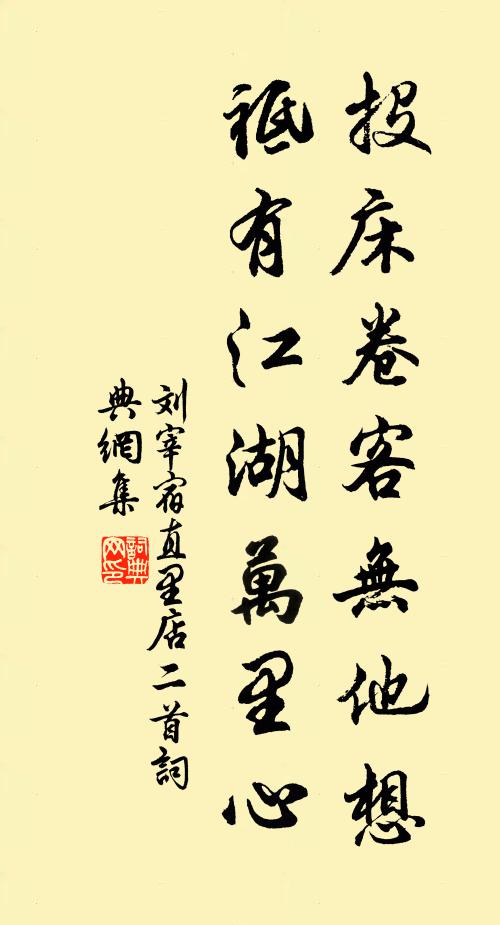 投床卷客無他想
祗有江湖萬里心
刘宰宿直里店二首詞
典網集
詞典
网印